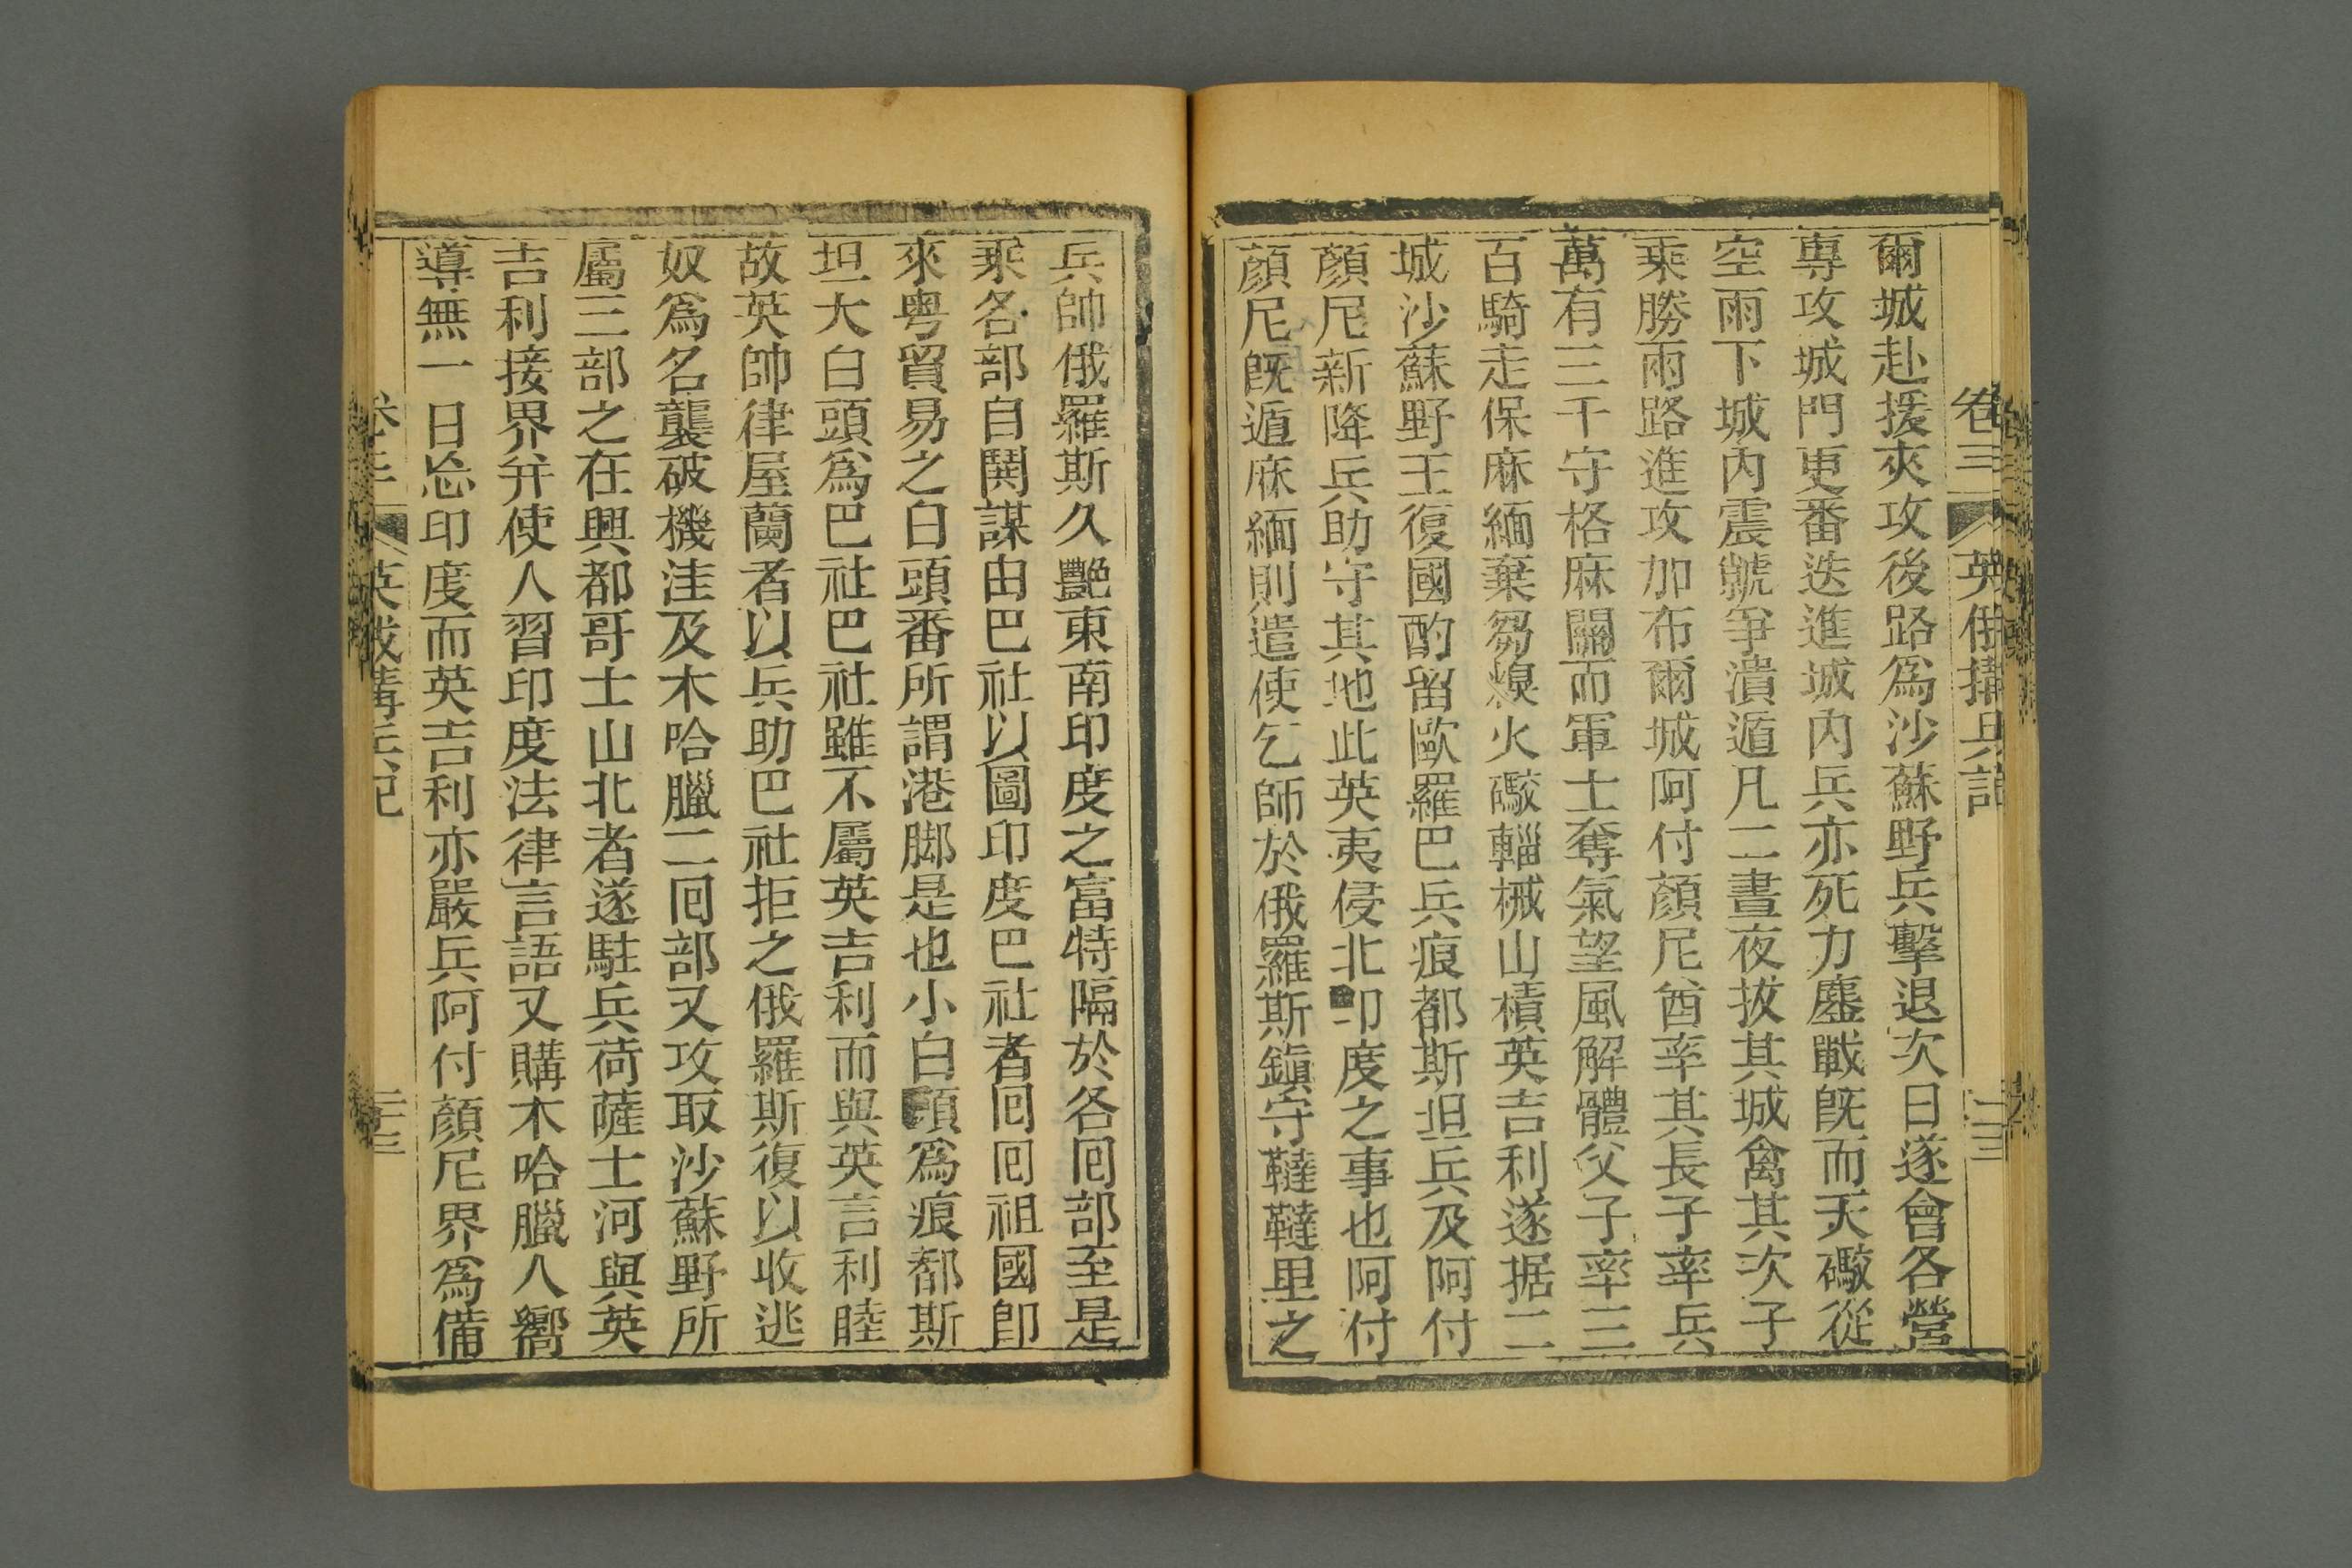 卷三 英俄搆兵記
爾城赴援夾攻後路爲沙蘇野兵擊退次日遂會各營
專攻城門更番迭進城內兵亦死力鏖戰旣而天礮從
空雨下城內震號爭潰遁凡二晝夜拔其城禽其次子
乘勝兩路進攻加布爾城阿付顏尼酋率其長子率兵
萬有三千守格麻關而軍士奪氣望風解體父子率三
百騎走保麻緬棄芻糗火礮輜械山積英吉利遂据二
城沙蘇野王復國酌留歐羅巴兵痕都斯坦兵及阿付
顏尼新降兵助守其地此英夷侵北印度之事也阿付
顏尼旣遁麻緬則遣使乞師於俄羅斯鎭守韃韃里之
兵帥俄羅斯久艷東南印度之富特隔於各囘部至是
乘各部自鬩謀由巴社以圖印度巴社者囘囘祖國卽
來粤貿易之白頭番所謂港脚是也小白頭爲痕都斯
坦大白頭爲巴社巴社雖不屬英吉利而與英言利睦
故英帥律屋蘭者以兵助巴社拒之俄羅斯復以收逃
奴爲名襲破機洼及木哈臘二囘部又攻取沙蘇野所
屬三部之在興都哥士山北者遂駐兵荷薩士河與英
吉利接界并使人習印度法律言語又購木哈臘人嚮
導無一日忘印度而英吉利亦嚴兵阿付顏尼界爲備